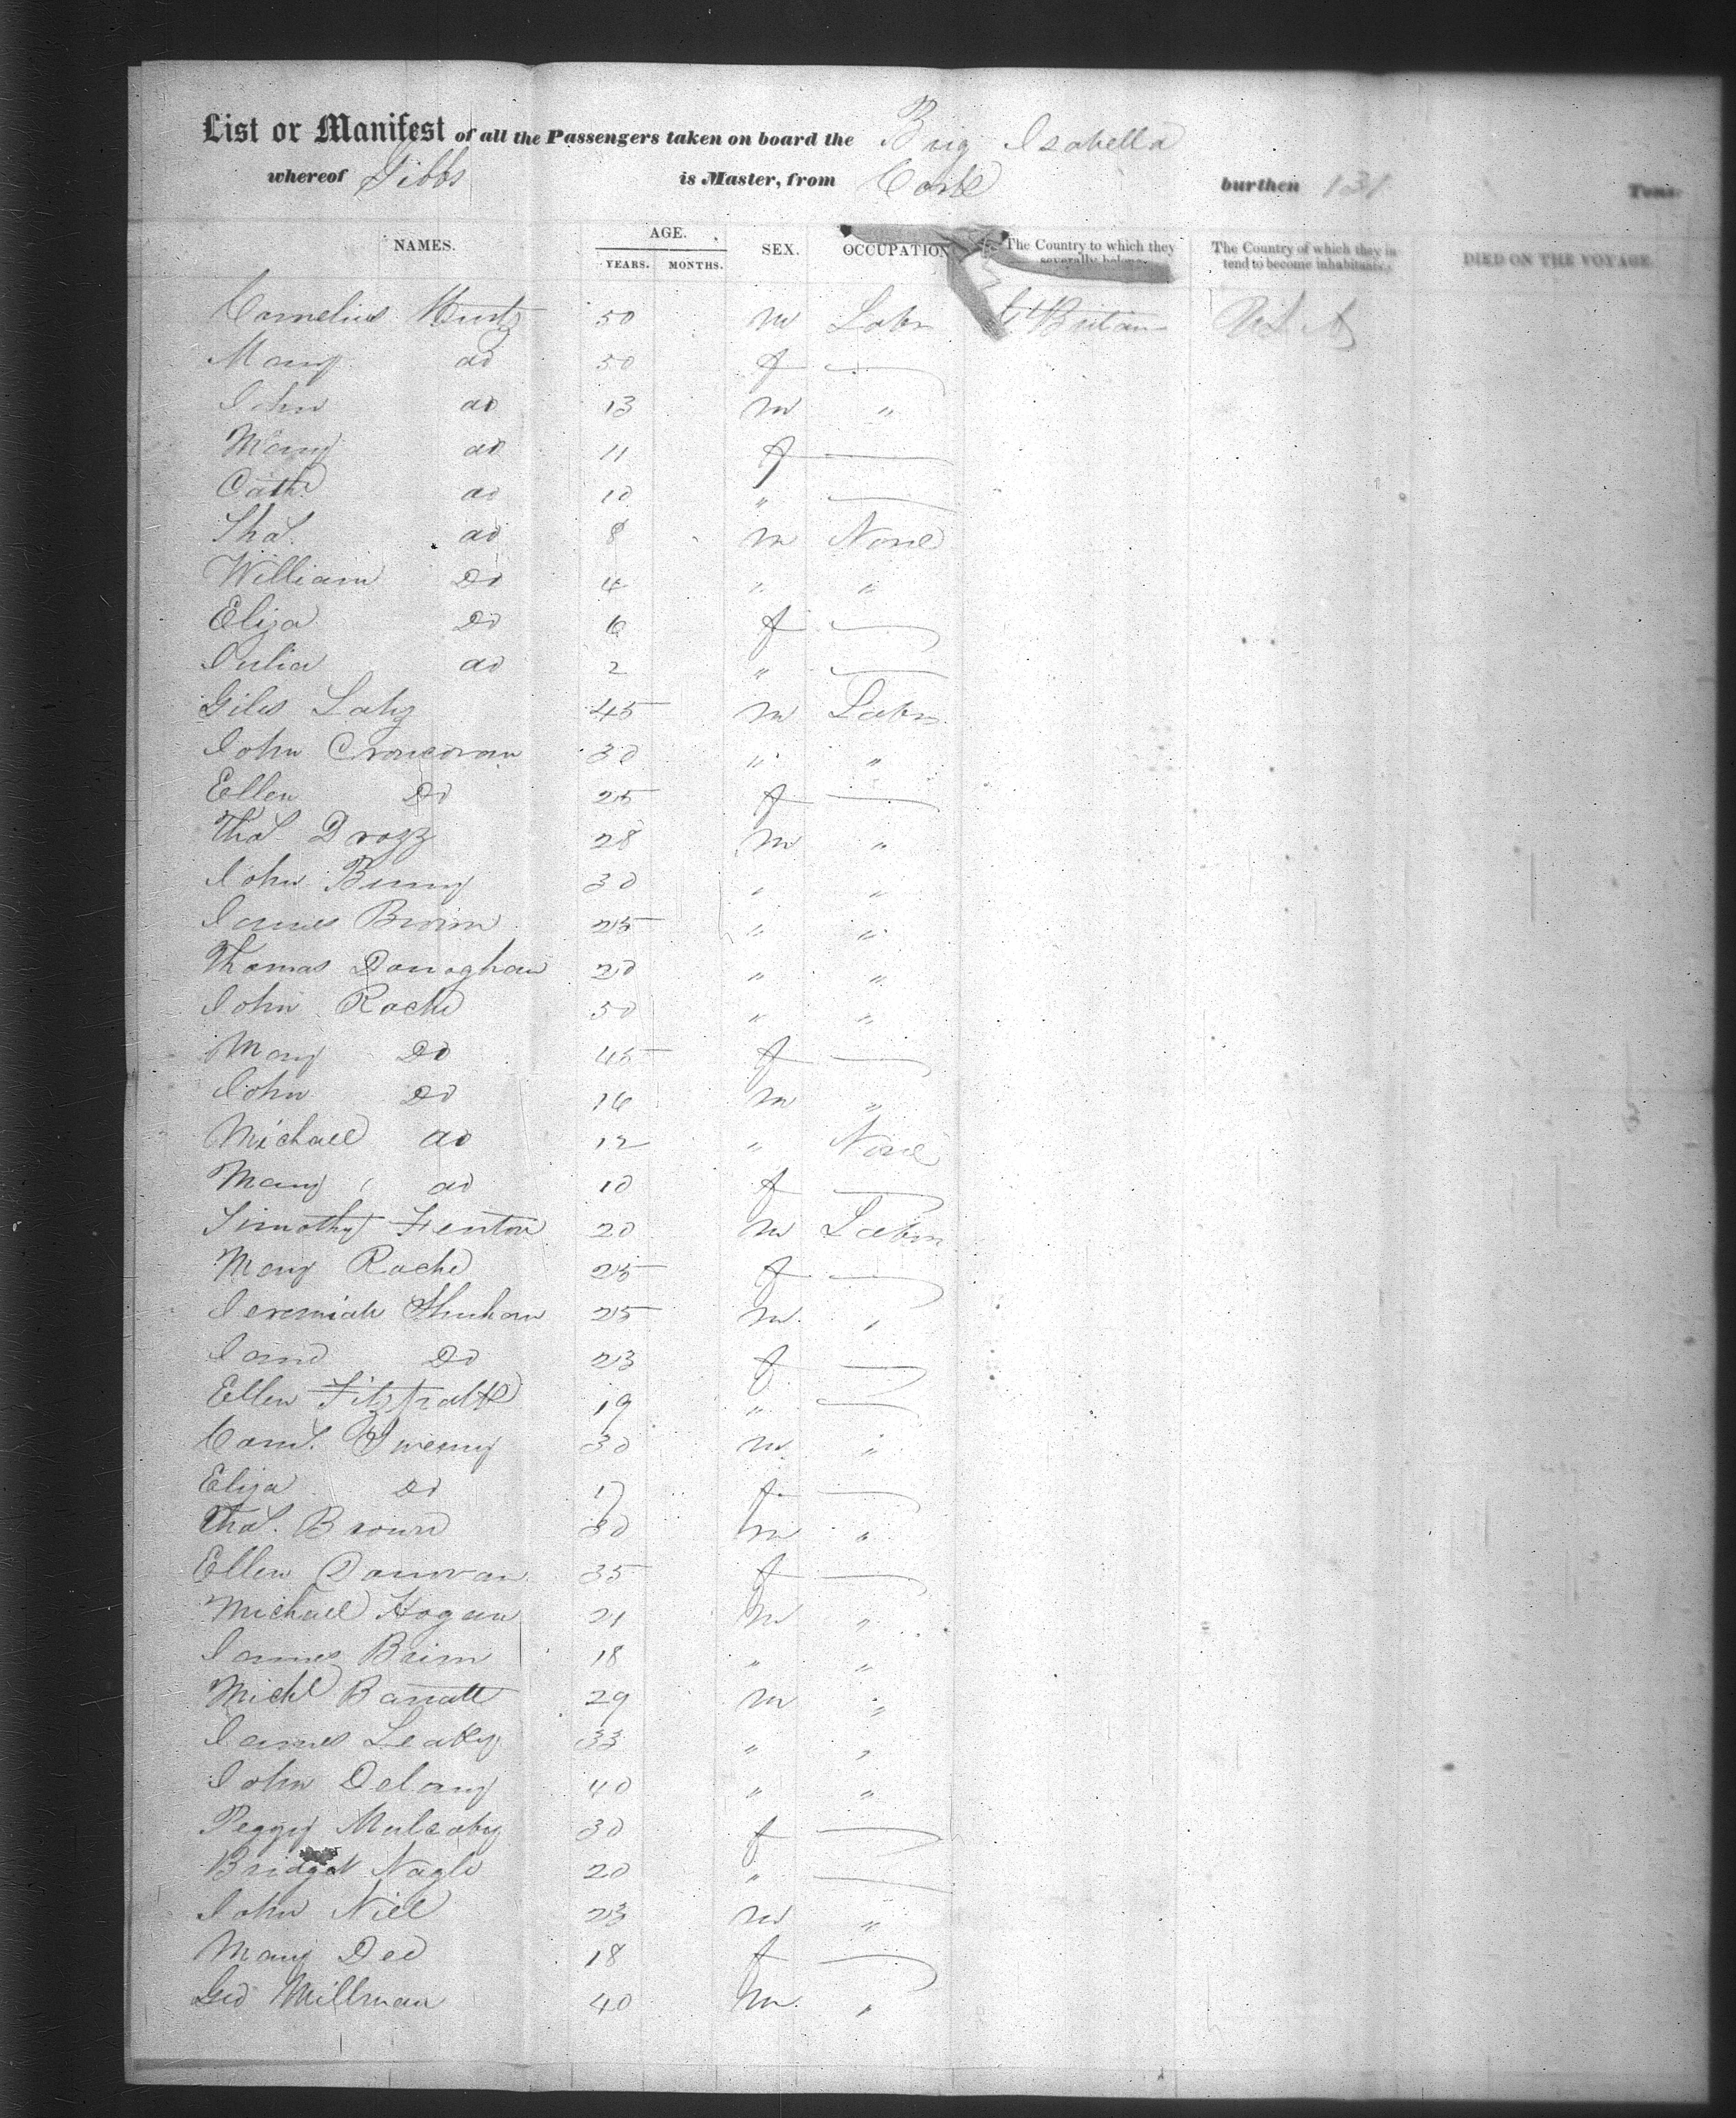 List or Manifest of all the Passengers taken on board the Brig Isabella
whereof Gibbs is Master, from Cork burthen 131 Tons
NAMES. AGE. YEARS. MONTHS. SEX. OCCUPATION The Country to which they severally belong. The Country of which they intend to become inhabitants. DIED ON THE VOYAGE
Cornelius 50 m Labr Gt Britain U.S. A
Mary do 50 f
John do 13 m "
Mary do 11 f
Cath do 10 "
Thos. do 8 m None
William Do 4 " "
Eliza Do 6 f
Julia do 2 "
Giles Lahy 45 m Labr
John Croncoran 30 " "
Ellen Do 25 f
Thos Drozz 28 m "
John Binny 30 " "
James Brown 25 " "
Thomas Donoghan 20 " "
John Roche 50 " "
Mary Do 45 f
John Do 16 m "
Michael do 12 " None
Mary do 10 f
Timothy Fenton 20 m Labr
Mary Roche 25 f
Jeremiah Shuhan 25 m "
Jane Do 23 f
Ellen 19 "
Corns. Sweeny 30 m "
Eliza Do 17 f
Thos. Brown 30 m "
Ellen Donovan 35 f
Michael Hogan 21 m "
James 18 " "
Michl Barratt 29 m "
James Leahy 33 " "
John Delany 40 " "
Peggy Mulcahy 30 f
Bridget Nagle 20 "
John Niel 23 m "
Mary Dee 18 f
Geo Millman 40 m "